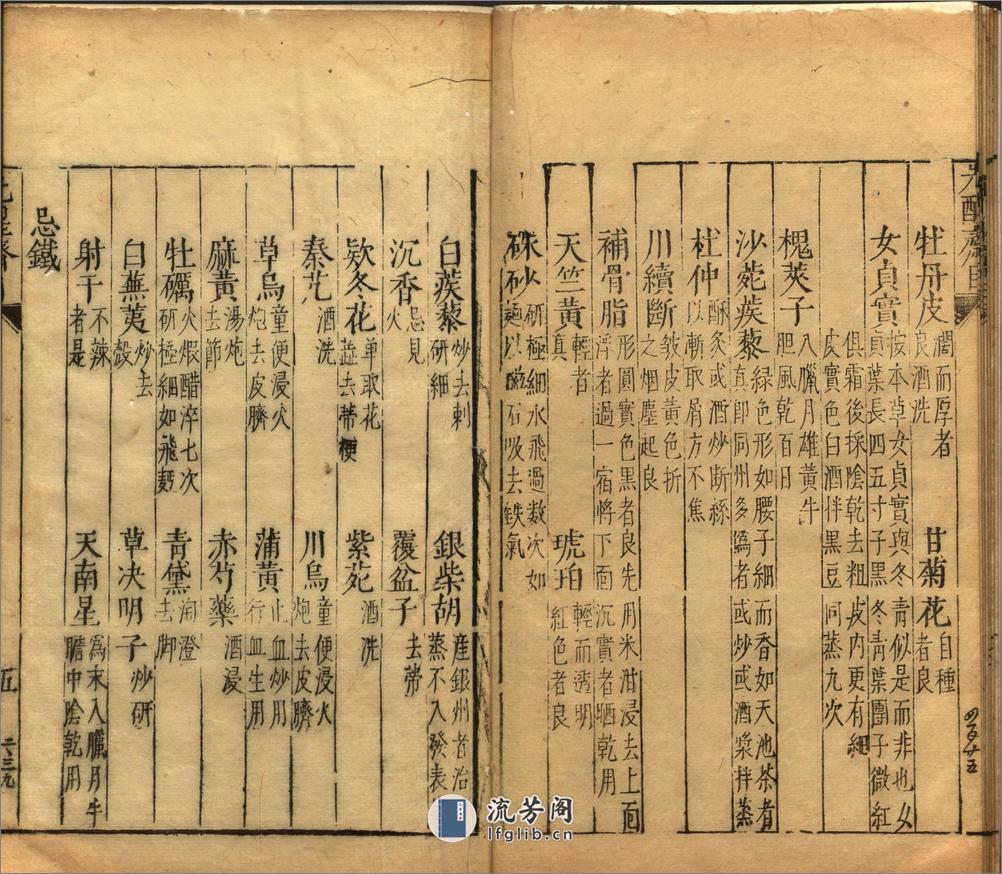 先醒齋
牡丹皮 闊而厚者良酒洗 甘菊花 自種者良
女貞實 按本草女貞實與冬青似是而非也女貞葉長四五寸子黑冬青葉團子微紅
俱霜後採陰乾去粗皮內更有細皮實色白酒拌黑豆同蒸九次
槐莢子 八臘月雄黃牛膽風乾百日
沙菀蒺藜 綠色形如腰子細而香如天池茶者真即同州多偽者或炒或酒漿拌蒸
杜仲 酥炙或酒炒斷絲以漸取屑方不焦
川續斷 皺皮黃色折之烟塵起良
補骨脂 形圓實色黑者良先用米泔浸去上面浮者過一宿將下面沉實者晒乾用
天竺黃 輕者真 琥珀 輕而透明紅色者良
硃砂 研極細水飛過數次如麵以磁石吸去鉄氣
白蒺藜 炒去刺研細 銀柴胡 產銀州者治蒸不入發表
沉香 忌見火 覆盆子 去蒂
欵冬花 单取花蕋去蒂梗 紫菀 酒洗
秦艽 酒洗 川烏 童便浸火炮去皮臍
草烏 童便浸火炮去皮臍 蒲黃 止血炒用行血生用
麻黃 湯炮去節 赤芍藥 酒浸
牡礪 火煆醋淬七次研極細如飛麪 青黛 淘澄去脚
白蕪荑 炒去殼 草决明子 炒研
射干 不辣者是 天南星 為末入臘月牛膽中陰乾用
忌鐵
五
流芳阁
lfglib.cn